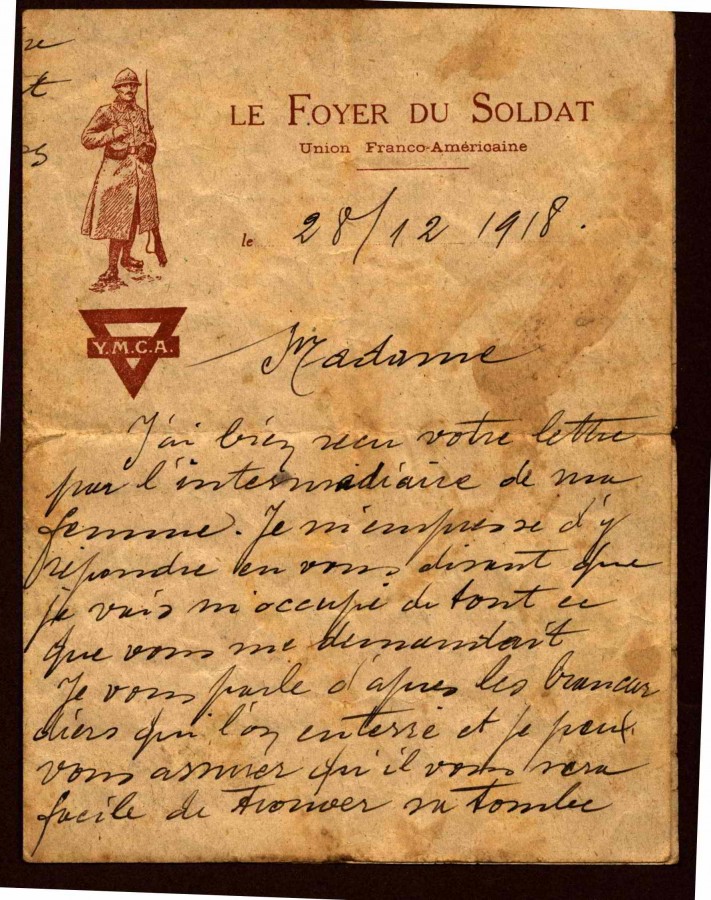 re
t
es
LE FOYER DU SOLDAT
Union Franco-Américaine
le 28/12 1918.
Y.M.C.A.
Madame
J'ai bien recu votre lettre
par l'intermédiaire de ma
femme. Je m'empresse d'y
répondre en vous disant que
je vais m'occupé de tout ce
que vous me demandait
Je vous parle d'apres les brancar
diers qui l'on enterré et je peux
vous assurer qu'il vous sera
facile de trouver sa tombe